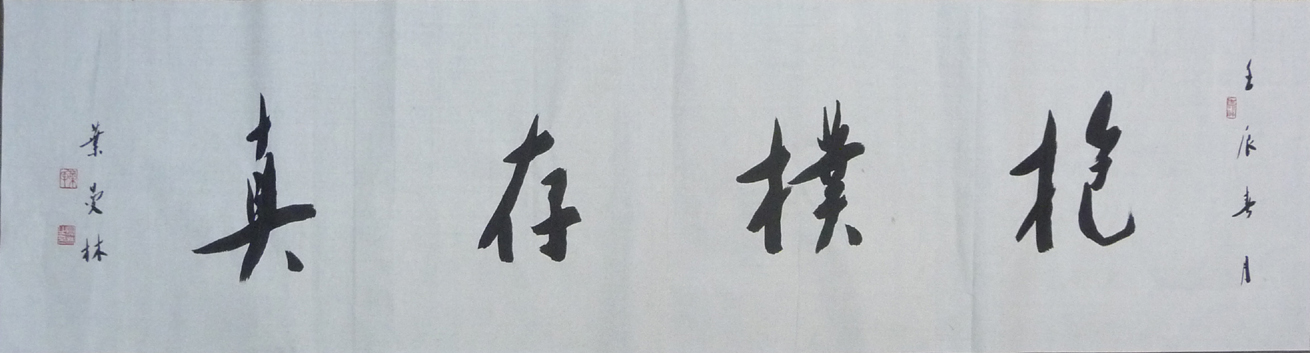 壬辰春月
抱樸存真
葉曼林